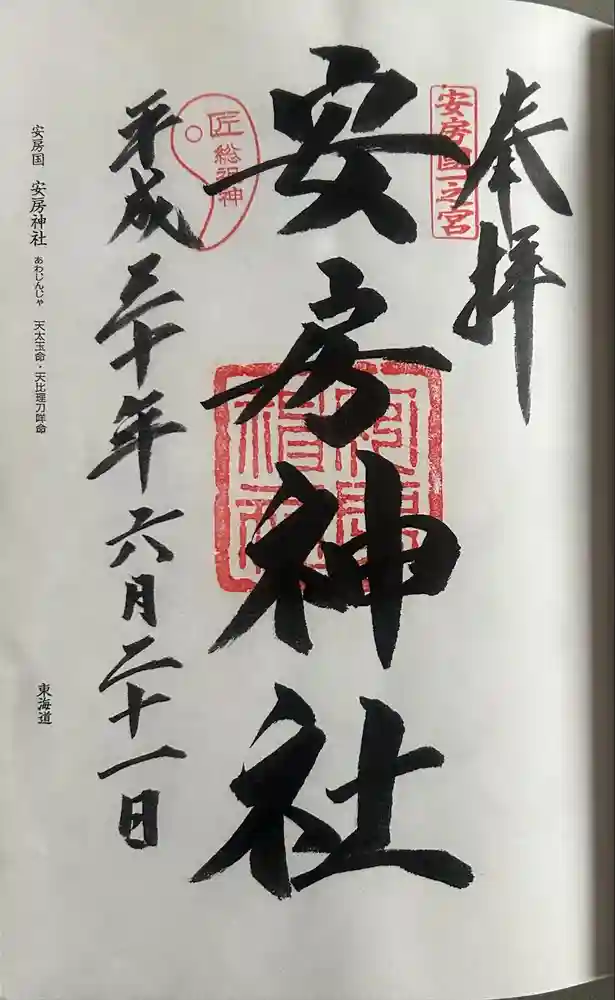 奉拝
安房國一之宮
安房神社
安房神社
匠
総祖神
平成三十年六月二十一日
安房国 安房神社 あわじんじゃ 天太玉命・天比理刀咩命
東海道